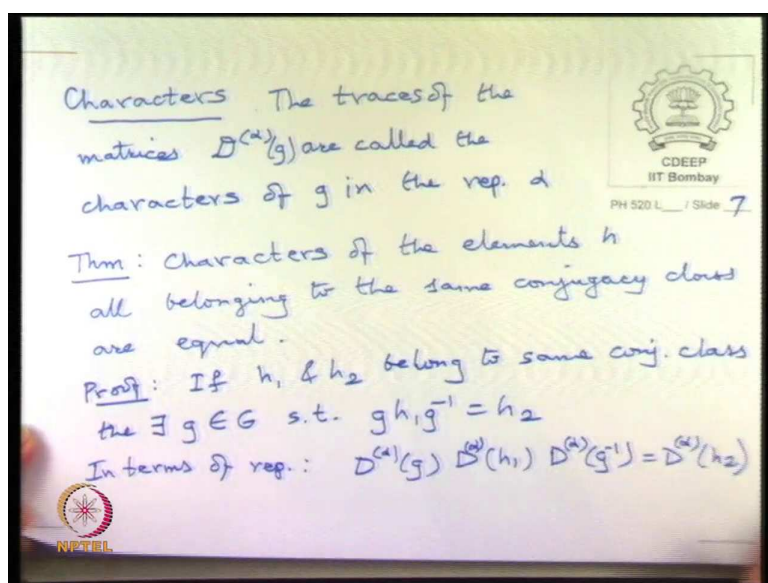 Characters The traces of the
matrices D^(α)(g) are called the
characters of g in the rep. α
CDEEP
IIT Bombay
PH 520 L__ / Slide 7
Thm : Characters of the elements h
all belonging to the same conjugacy class
are equal.
Proof : If h₁ & h₂ belong to same conj. class
the ∃ g ∈ G s.t. g h₁ g⁻¹ = h₂
In terms of rep. : D^(α)(g) D^(α)(h₁) D^(α)(g⁻¹) = D^(α)(h₂)
NPTEL